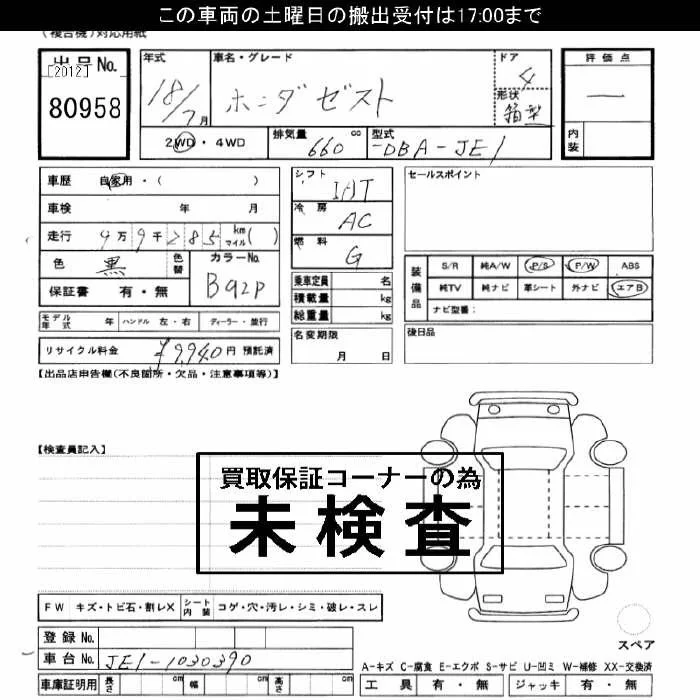 この車両の土曜日の搬出受付は17:00まで
(複合機)対応用紙
出品No.
[2012]
80958
年式
18/7月
車名・グレード
ホンダ ゼスト
ドア
4
形状
箱型
評価点
―
内装
2WD・4WD
排気量 660 cc
型式 DBA-JE1
車歴 自家用・( )
車検 年 月
走行 9万9千285 km マイル( )
色 黒 色替
カラーNo. B92P
保証書 有・無
シフト IAT
冷房 AC
燃料 G
乗車定員 名
積載量 kg
総重量 kg
セールスポイント
装備品
S/R 純A/W P/S P/W ABS
純TV 純ナビ 革シート 外ナビ エアB
ナビ型番:
モデル年式 年 ハンドル 左・右 ディーラー・並行
名変期限 月 日
後日品
リサイクル料金 ¥9,940円 預託済
【出品店申告欄(不良箇所・欠品・注意事項等)】
【検査員記入】
買取保証コーナーの為
未検査
FW キズ・トビ石・割レX シート内装 コゲ・穴・汚レ・シミ・破レ・スレ
登録No.
車台No. JE1-1030390
スペア
A-キズ C-腐食 E-エクボ S-サビ U-凹ミ W-補修 XX-交換済
車庫証明用 長さ cm 幅 cm 高さ cm
工具 有・無 ジャッキ 有・無